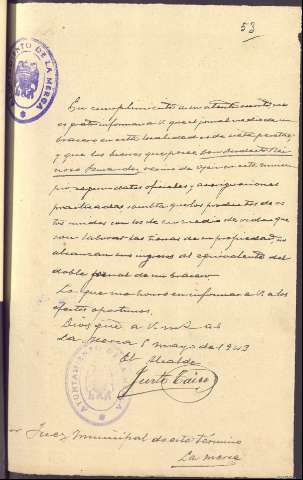 53
AYUNTAMIENTO DE LA MERCA
En cumplimiento a su atento escrito
es grato informar a V. que el jornal medio de un
bracero en esta localidad es de siete pesetas
y que los bienes que posee
vecino de
por repartimientos oficiales y averiguaciones
practicadas resulta que los productos de es
tos unidos con los de su medio de vida que
son labrar las tierras de su propiedad no
alcanzan sus ingresos al equivalente del
doble jornal de un bracero
Lo que me honro en informar a V. a los
efectos oportunos.
Dios gue a V. m. as
La Merca 5 mayo de 1943
El Alcalde
Justo
AYUNTAMIENTO DE LA MERCA
Sr Juez Municipal de este término
La Merca